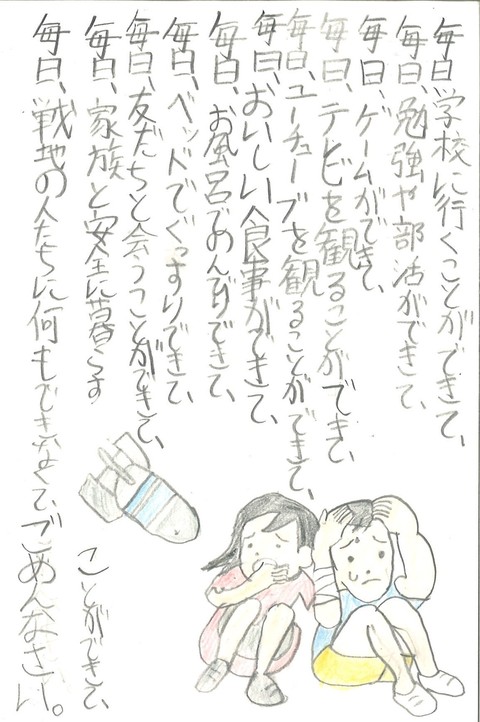 毎日学校に行くことができて、
毎日、勉強や部活ができて、
毎日、ゲームができて、
毎日、テレビを観ることができて、
毎日、ユーチューブを観ることができて、
毎日、おいしい食事ができて、
毎日、お風呂でのんびりできて、
毎日、ベッドでぐっすりできて、
毎日、友だちと会うことができて、
毎日、家族と安全に暮らす
ことができて、
毎日、戦地の人たちに何もできなくて、ごめんなさい。